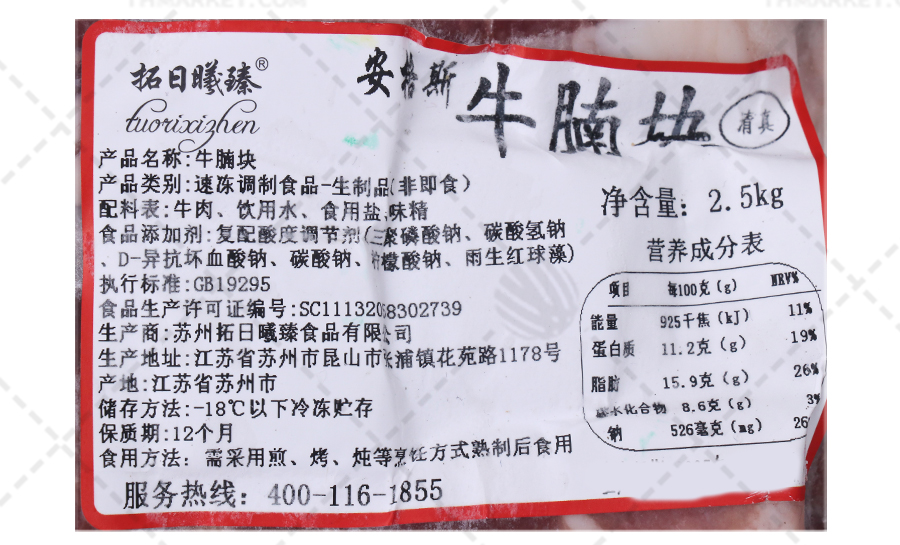 THMARKET.COM
THMARKET.COM
拓日曦臻®
tuorixizhen
安格斯 牛腩块 清真
产品名称:牛腩块
产品类别:速冻调制食品-生制品(非即食)
配料表:牛肉、饮用水、食用盐、味精
食品添加剂:复配酸度调节剂(三聚磷酸钠、碳酸氢钠
、D-异抗坏血酸钠、碳酸钠、柠檬酸钠、雨生红球藻)
执行标准:GB19295
食品生产许可证编号:SC11132058302739
生产商:苏州拓日曦臻食品有限公司
生产地址:江苏省苏州市昆山市张浦镇花苑路1178号
产地:江苏省苏州市
储存方法:-18℃以下冷冻贮存
保质期:12个月
食用方法: 需采用煎、烤、炖等烹饪方式熟制后食用
服务热线: 400-116-1855
净含量: 2.5kg
营养成分表
项目 每100克(g) NRV%
能量 925千焦(kJ) 11%
蛋白质 11.2克(g) 19%
脂肪 15.9克(g) 26%
碳水化合物 8.6克(g) 3%
钠 526毫克(mg) 26